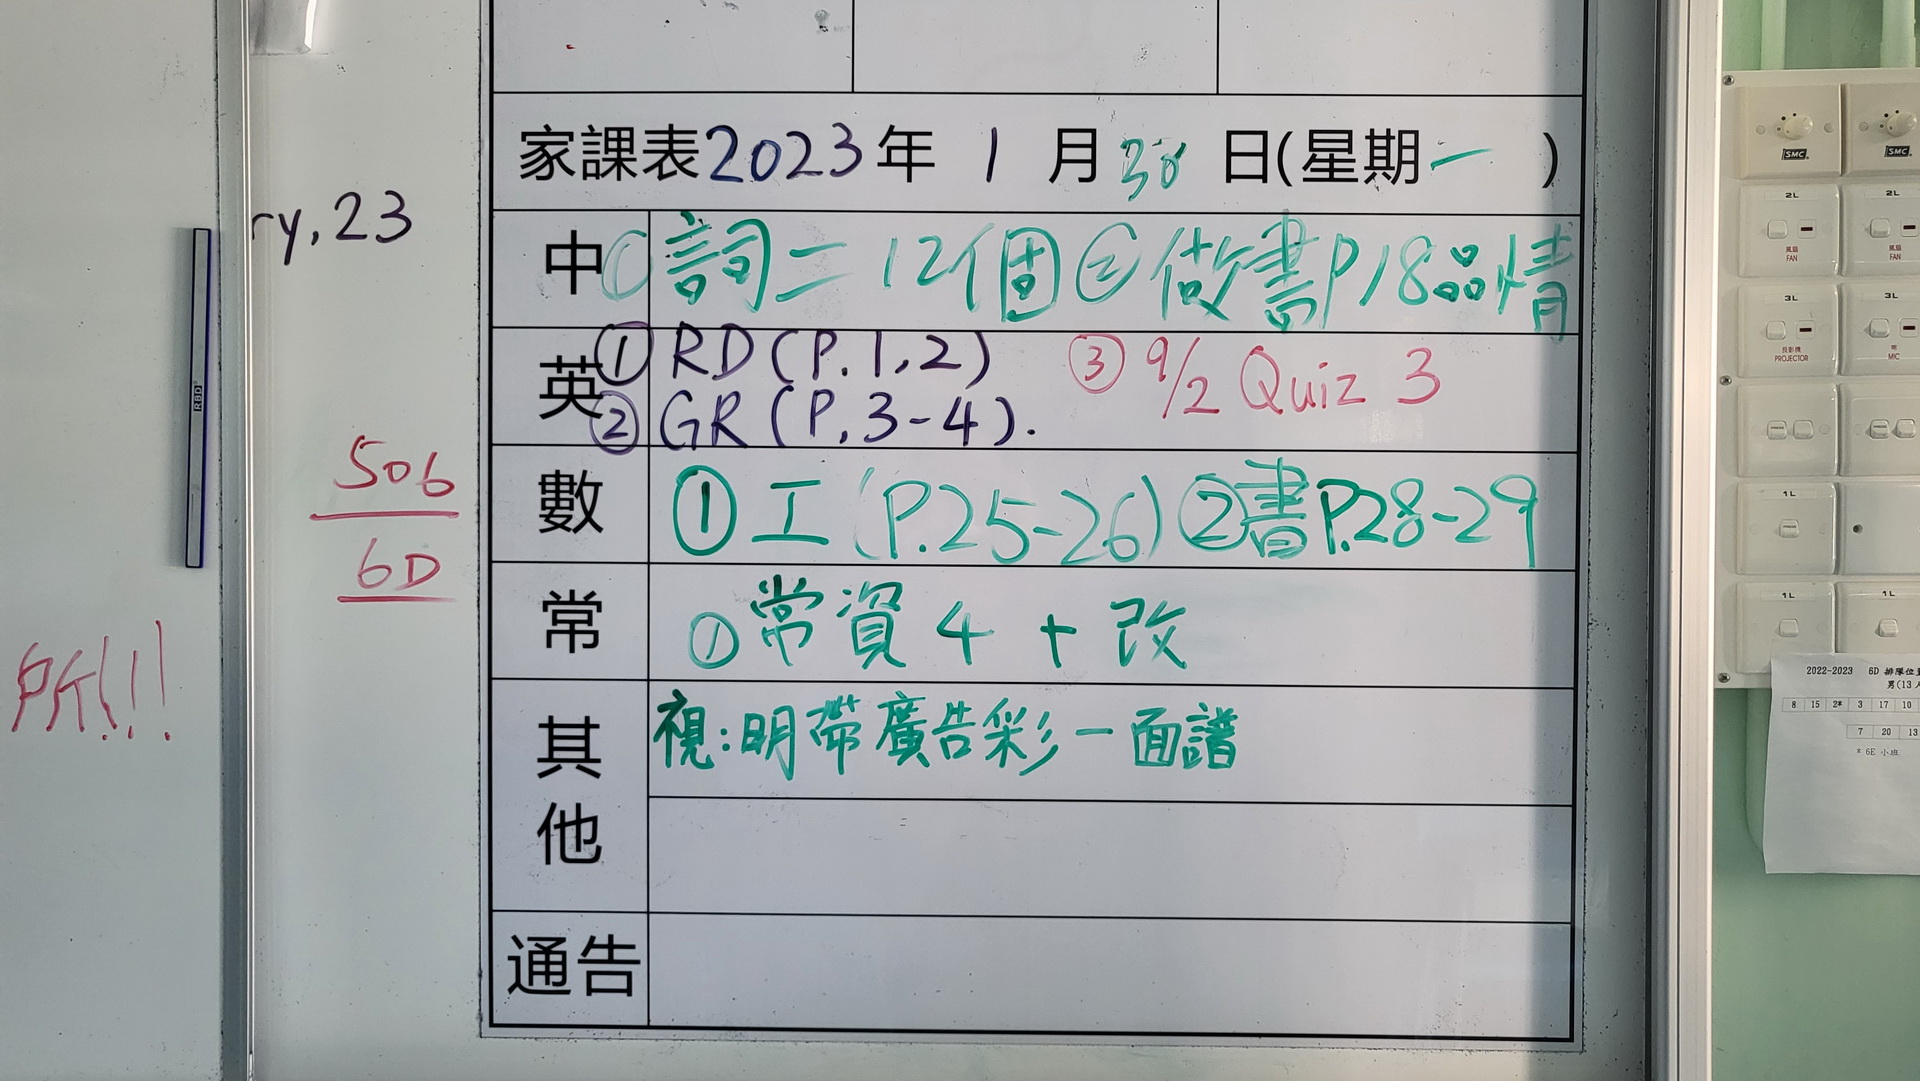 家課表2023年 1 月 30 日(星期一 )
ry, 23
中 ① 詞二 12個 ② 做書P.18品情
英 ① RD (P. 1, 2) ③ 9/2 Quiz 3
② GR (P. 3-4).
506
6D
數 ① 工 (P.25-26) ② 書P.28-29
常 ① 常資 4 + 改
所!!!
其他 視:明帶廣告彩一面譜
通告
RBD
SMC SMC
2L 2L
風扇 FAN 風扇 FAN
3L 3L
投影機 PROJECTOR MIC
1L
1L 1L
2022-2023 6D 排隊位
男(13
8 15 2* 3 17 10
7 20 13
* 6E 小班